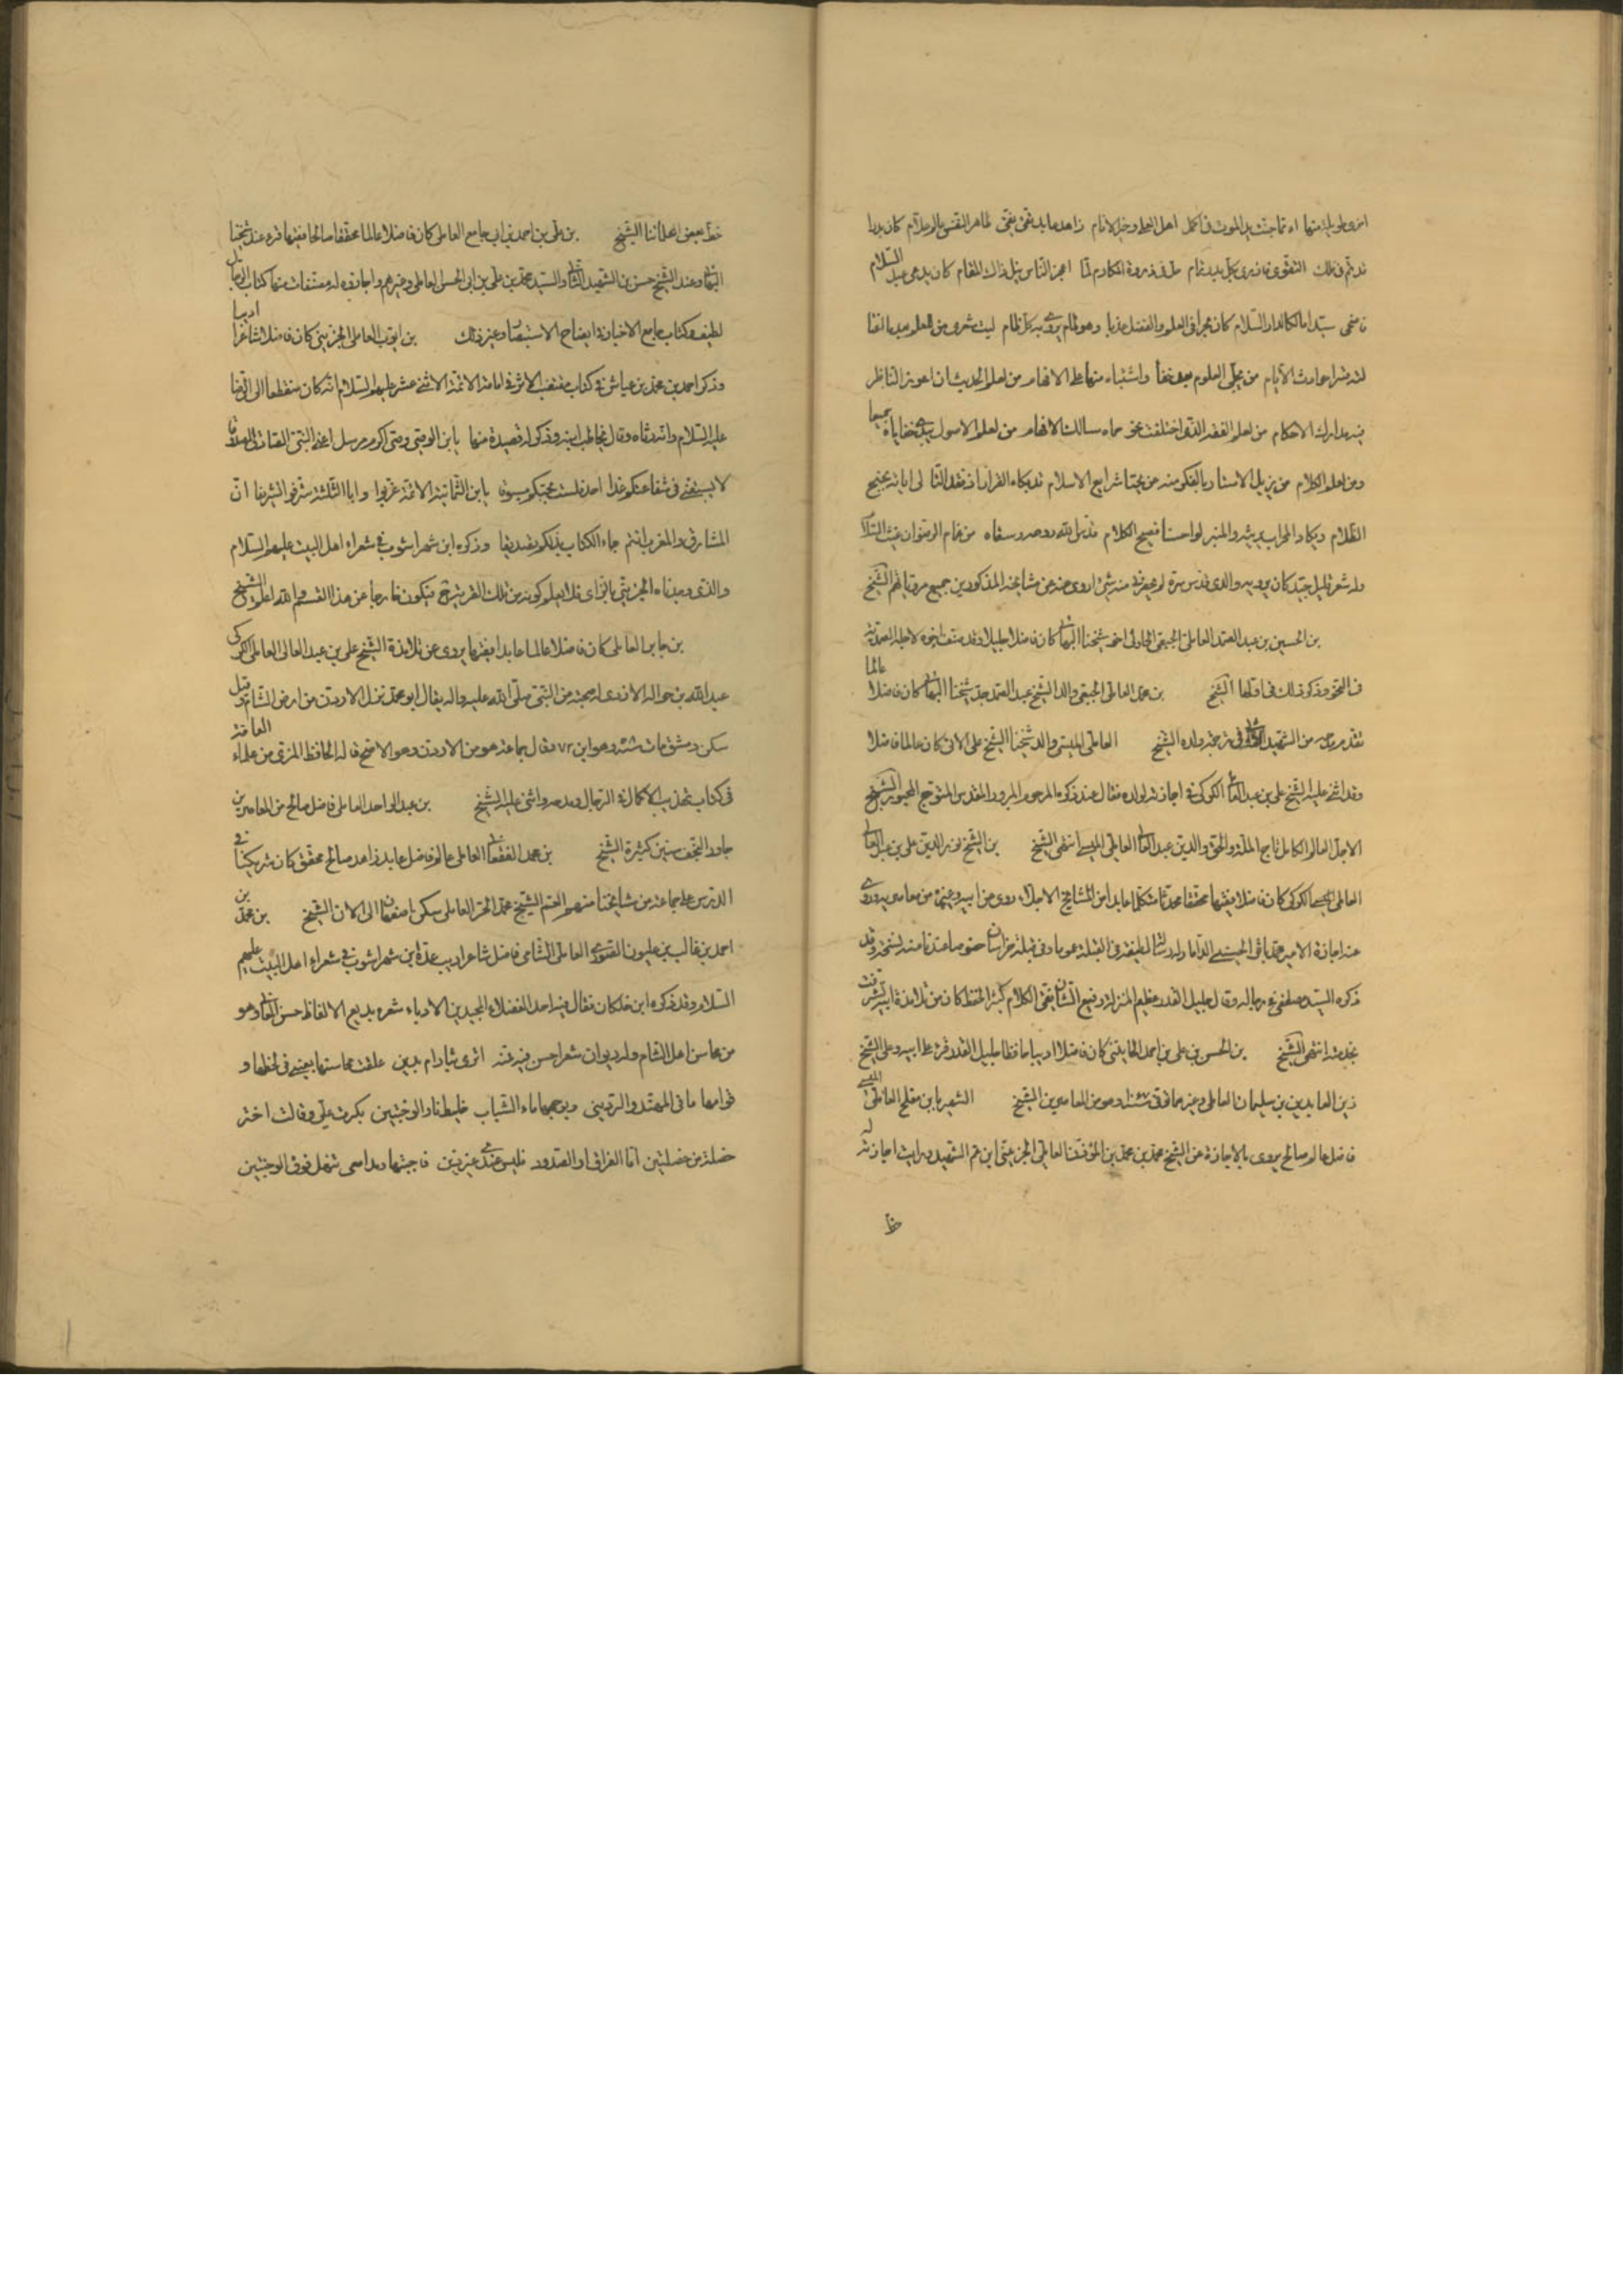 اخرى طويلة منها اه ما جنت يد الموت في اكمل اهل العلى وخير الانام زاهد عابد تقي نقي طاهر النفس والد علام كان بدرا
قد تم في فلك التقوى فازرى بكل بدر تمام حل في ذروة المكارم لما اعجز الناس نيل ذاك المقام كان يدعى عبد السلام
فاضحى سيدا مالكا لدار السلام كان بحرا في العلوم والفضل عذبا وهو طام يروى به كل ظام ليت شعرى من للعلوم بعد ما القا
لنه خير حوادث الايام من يجلى العلوم بعد خفا واشتباه منها على الافهام من لعلم الحديث ان اعوز الناظر
فيه مدارك الاحكام من لعلم الفقه الذى اختلفت نحو حماه مسالك الافهام من لعلم الاصول يبدى خفاياه جميعا
ومن لعلم الكلام من يزيل الاستار بالفكر منه عن محيا شرايع الاسلام قد بكاه القران اذ فقد التا لى اياته بجنح
الظلام وبكاه المحراب يرثيه والمنبر لو احسنا فصيح الكلام قدس الله روحه وسقاه من غمام الرضوان غيث السلا
وله شعر قليل جيد كان يرويه والدى قدس سره لم يحضرنى منه شئ اروى عنه عن مشايخه المذكورين جميع مروياتهم الشيخ
بن الحسين بن عبد الصمد العاملى الجبعى الحارثى اخو شيخنا البهائى كان فاضلا جليلا وقد صنف اخوه لاجله الصمدية
في النحو وذكر ذلك في اولها الشيخ بن محمد العاملى الجبعى والد الشيخ عبد الصمد جد شيخنا البهائى كان فاضلا عالما
تقدم مدحه من الشهيد الثانى في ترجمة ولده الشيخ العاملى الميسى والد شيخنا الشيخ على الاتى كان عالما فاضلا
وقد اثنى عليه الشيخ على بن عبد العالى الكركى في اجازته لولده فقال عند ذكره المرحوم المبرور المقدس المتوج المحبور الشيخ
الاجل العالم الكامل تاج الملة والحق والدين عبد العالى العاملى الميسى انتهى الشيخ بن الشيخ نور الدين على بن عبد العالى
العاملى الميسى الكركى كان فاضلا فقيها محققا محدثا متكلما عابدا من المشايخ الاجلاء روى عن ابيه وغيره من معاصريه وروى
عنه اجازة الامير محمد باقر الحسينى الداماد له رسالة لطيفة في القبلة عموما وفي قبلة خراسان خصوصا عندنا منه نسخة وقد
ذكره السيد مصطفى في رجاله وقال جليل القدر عظيم المنزلة رفيع الشان نقى الكلام كثير الحفظ كان من تلامذة ابيه تشرفت
بخدمته انتهى الشيخ بن الحسن بن على بن احمد الحانينى كان فاضلا اديبا حافظا جليل القدر قرء على ابيه وعلى الشيخ
زين العابدين بن سليمان العاملى وغيرهما توفى سنة وهو من المعاصرين الشيخ الشهير بابن مفلح العاملى الميسى
فاضل عالم صالح يروى بالاجازة عن الشيخ محمد بن محمد بن المؤذن العاملى الجزينى ابن عم الشهيد رايت اجازته له
خط
خط بعض اعلامنا الشيخ بن على بن احمد بن ابى جامع العاملى كان فاضلا عالما محققا صالحا فقيها قرء عند شيخنا
البهائى وعند الشيخ حسن بن الشهيد الثانى والسيد محمد بن على بن ابى الحسن العاملى وغيرهم واجازوه له مصنفات منها كتاب الرجال
لطيف وكتاب جامع الاخبار في ايضاح الاستبصار وغير ذلك بن ايوب العاملى الجزينى كان فاضلا شاعرا اديبا
وذكر احمد بن محمد بن عياش في كتاب مقتضب الاثر في امامة الائمة الاثنى عشر عليهم السلام انه كان منقطعا الى الرضا
عليه السلام وانه رثاه وقال يخاطب ابنه وذكر له قصيدة منها يا بن الوصى وصى اكرم مرسل اعنى النبى الصادق المصدوقا
لا يستغنى في شفاعتكم غدا احد فلست بحبكم مسبوقا يا بن الثمانية الائمة غربوا وابا الثلثة شرقوا تشريقا ان
المشارق والمغرب انتم جاء الكتاب بذلكم تصديقا وذكره ابن شهراشوب في شعراء اهل البيت عليهم السلام
والذى وجدناه الجزينى بالزاى فلا يعلم كونه من تلك القرية فيكون خارجا عن هذا القسم والله اعلم الشيخ
بن جابر العاملى كان فاضلا عالما عابدا فقيها يروى عن تلامذة الشيخ على بن عبد العالى العاملى الكركى
عبد الله بن حواله الازدى له صحبة من النبى صلى الله عليه واله يقال ابو محمد نزل الاردن من ارض الشام وقيل
سكن دمشق مات سنة وهو ابن ٧٢ وقال جماعة هو من الاردن وهو الاصح قاله الحافظ المزى من علماء العامة
في كتاب تهذيب الاكمال في الرجال ومدحه واثنى عليه الشيخ بن عبد الواحد العاملى فاضل صالح من المعاصرين
جاور النجف سنين كثيرة الشيخ بن محمد الفقعانى العاملى عالم فاضل عابد زاهد صالح محقق كان شريكنا في
الدرس على جماعة من مشايخنا منهم العم الشيخ محمد الحر العاملى سكن اصفهان الى الان الشيخ بن محمد بن
احمد بن غالب بن غلبون الصورى العاملى الشامى فاضل شاعر اديب عده ابن شهراشوب في شعراء اهل البيت عليهم
السلام وقد ذكره ابن خلكان فقال فيه احد الفضلاء المجيدين الادباء شعره بديع الالفاظ حسن المعانى وهو
من محاسن اهل الشام وله ديوان شعر احسن فيه فمنه اترى بثار ام بدين علقت محاسنها بعينى في لحظها و
قوامها ما في المهند والردينى وبوجهها ماء الشباب خليط نار الوجنتين بكرت على وقالت اختر
خصلة من خصلتين اما الفراق او الصدود فليس عندى غير ذين فاجبتها ومدامعى تنهل فوق الوجنتين